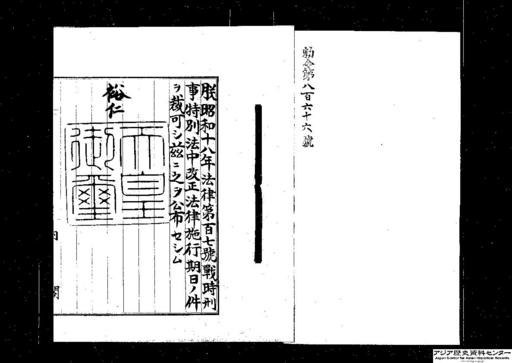 勅令第八百六十六號
朕昭和十八年法律第百七號戰時刑
事特別法中改正法律施行期日ノ件
ヲ裁可シ茲ニ之ヲ公布セシム
裕仁
天皇
御璽
内
閣
アジア歴史資料センター
Japan Center for Asian Historical Records